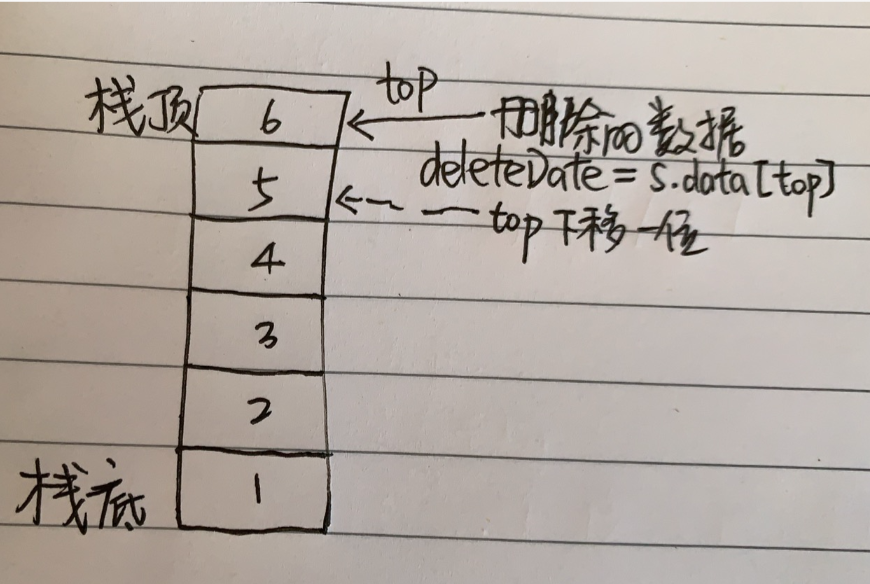 top
栈顶 6 删除100数据
deleteDate = s.data[top]
5
top下移一位
4
3
2
栈底 1